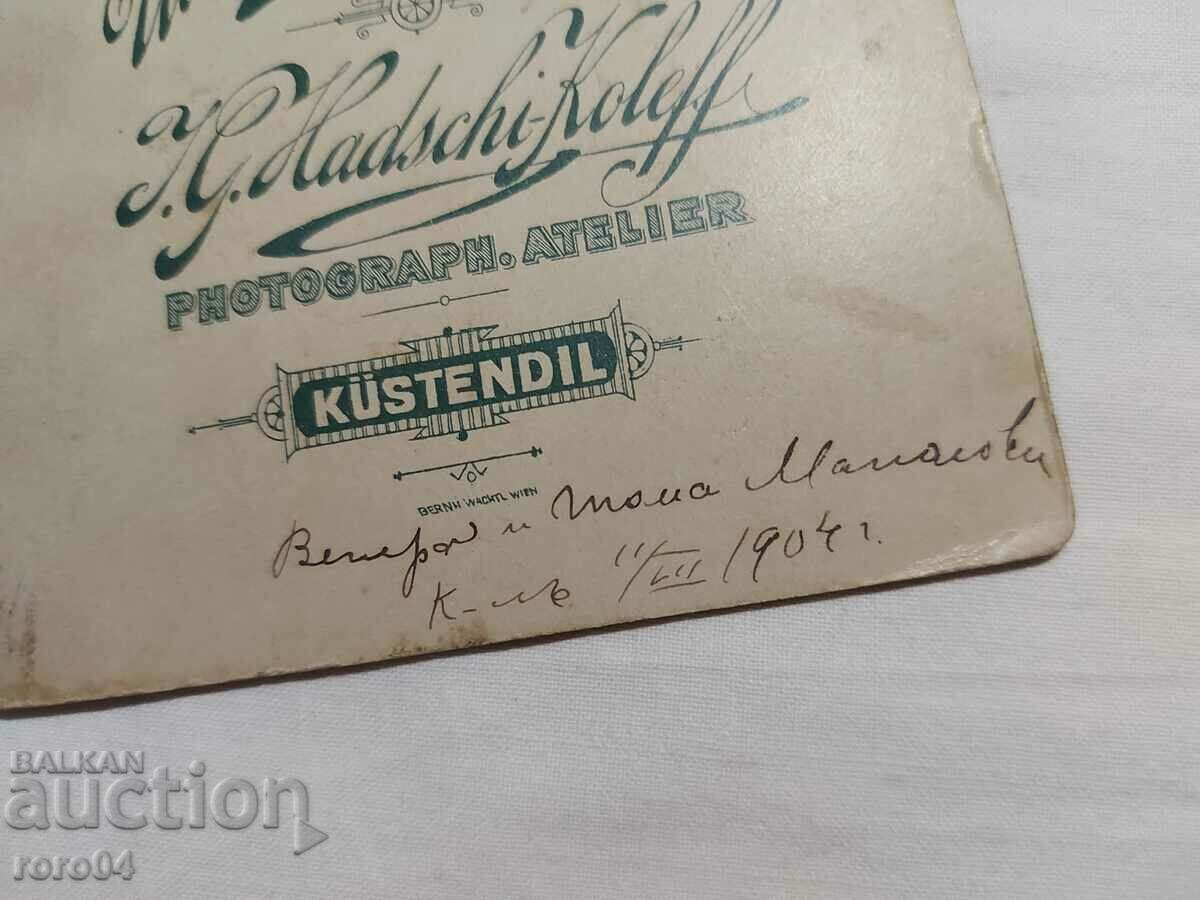 J.G. Hadschi-Koleff
PHOTOGRAPH. ATELIER
KÜSTENDIL
BERNH. WACHTL WIEN
Венера и Тома
К-лъ 11/III 1904 г.
BALKAN
auction
roro04